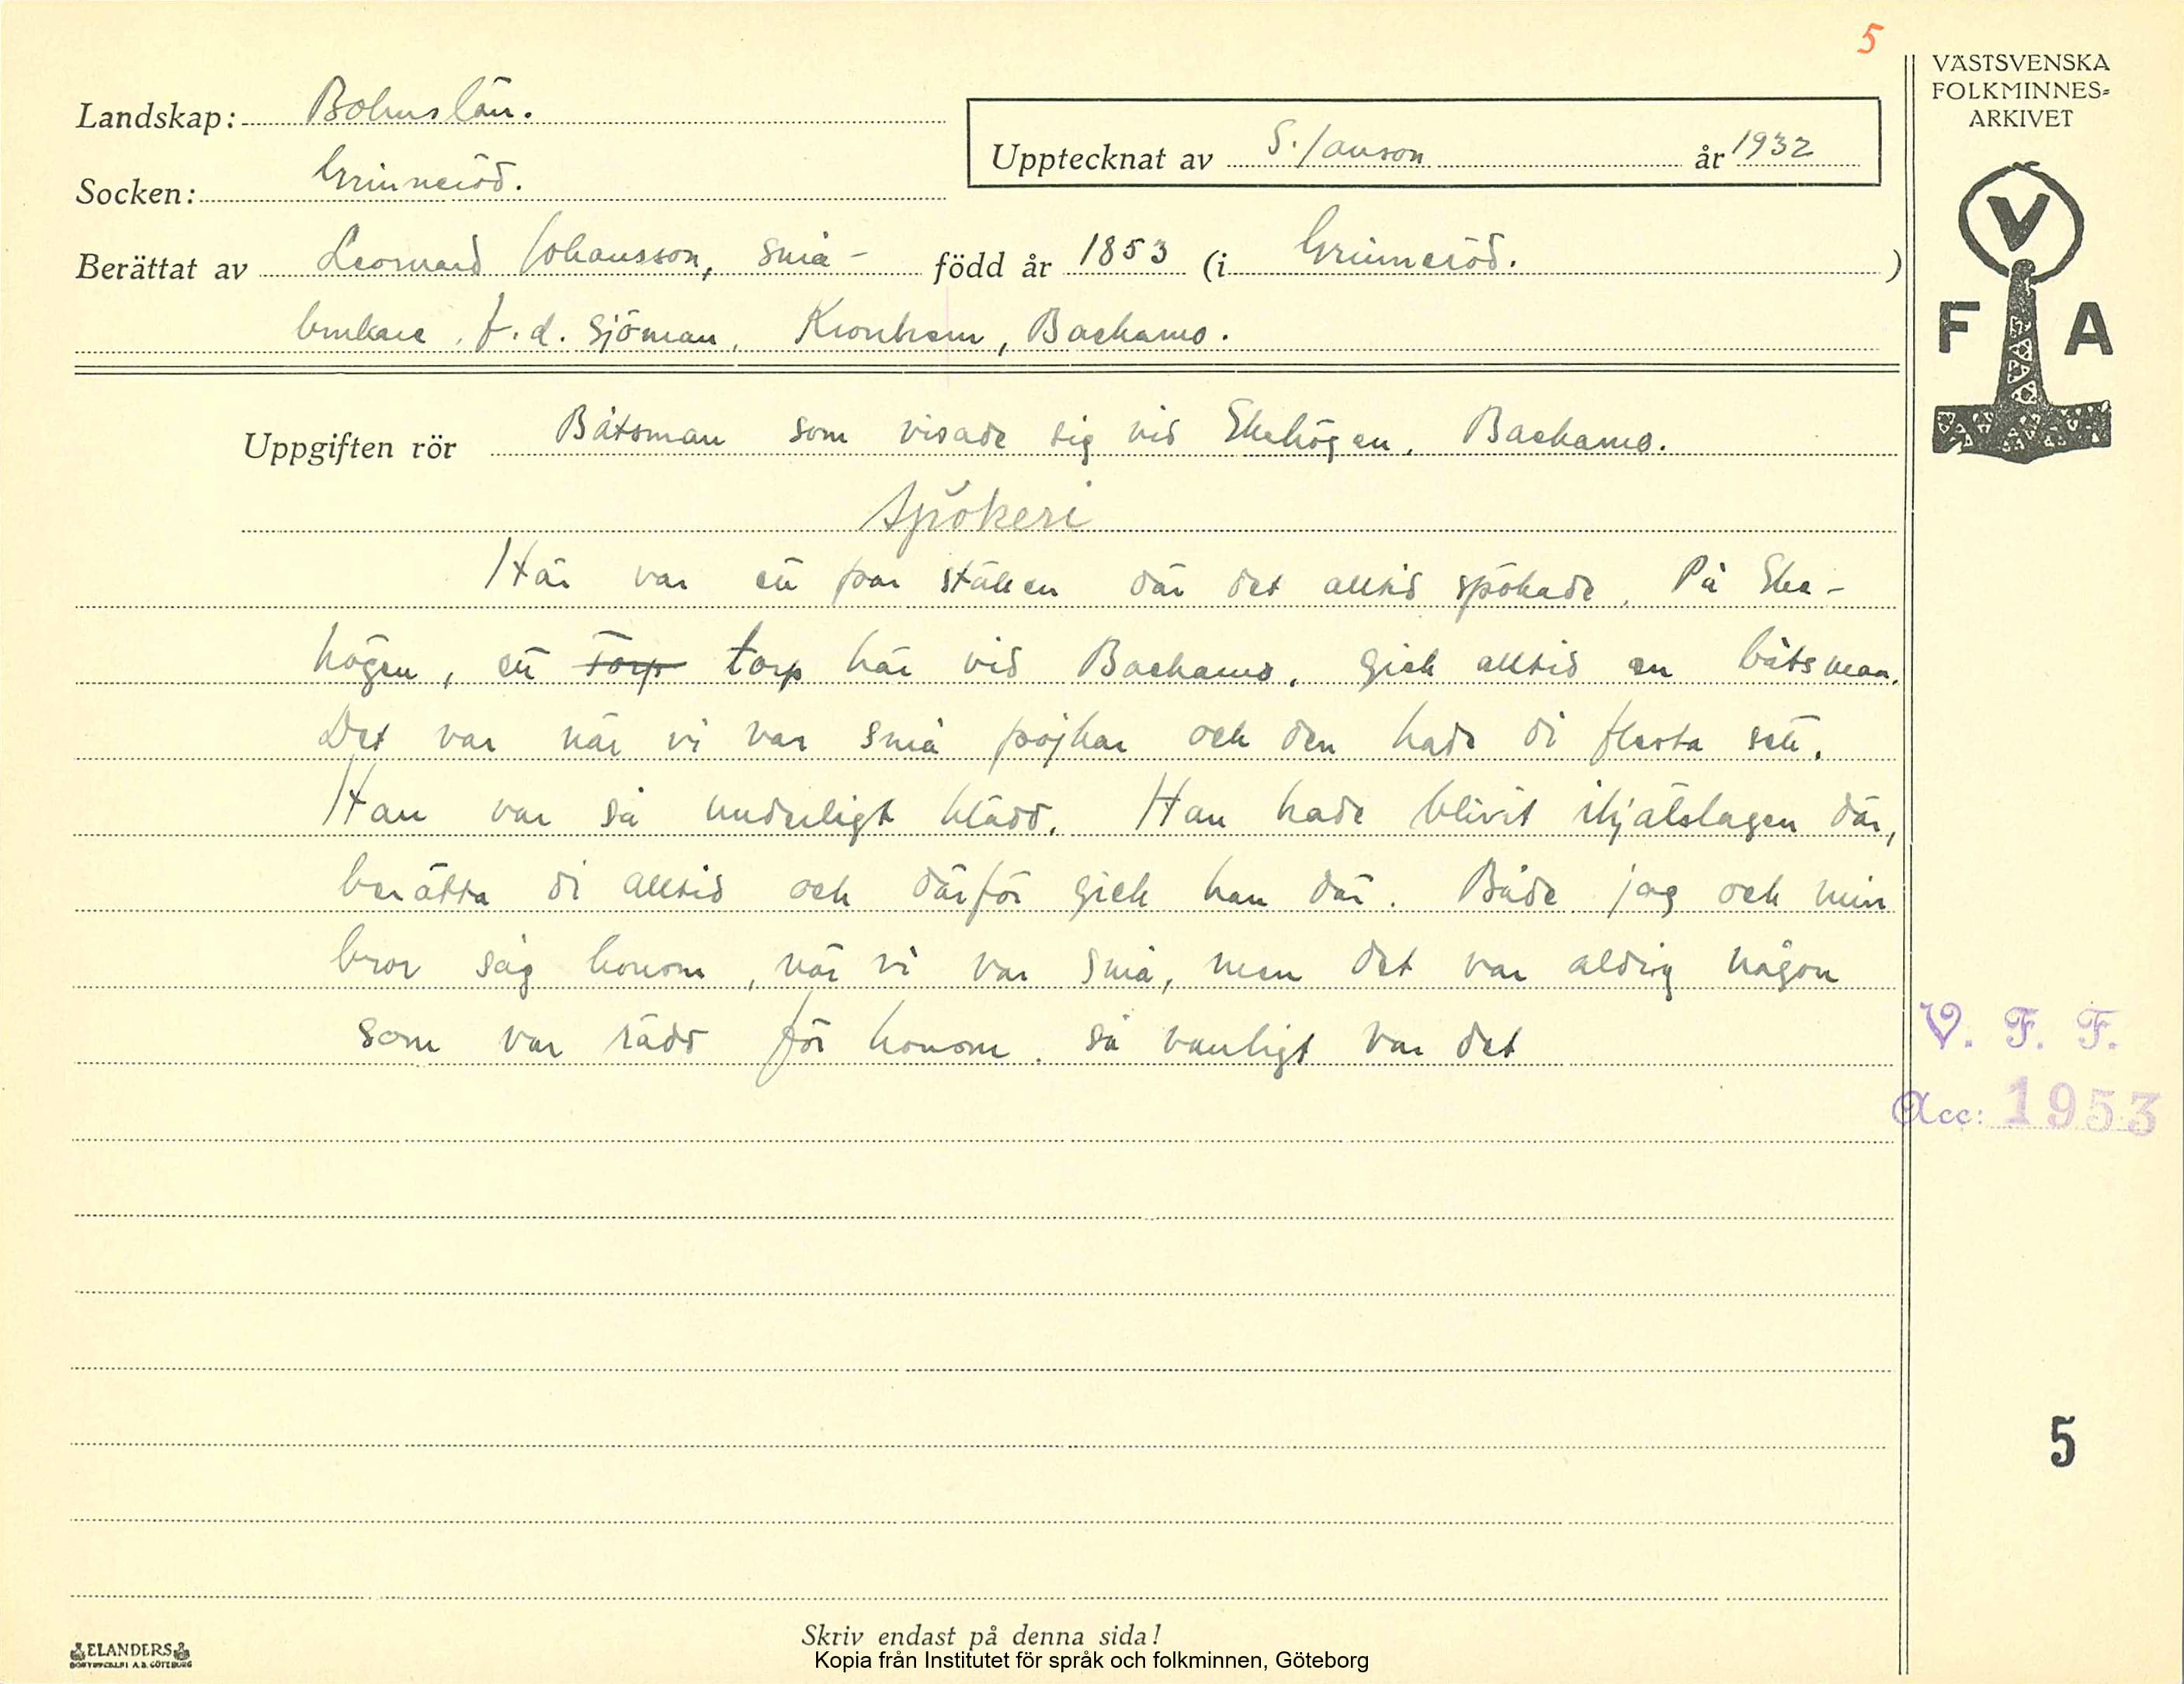 5
VÄSTSVENSKA
FOLKMINNES=
ARKIVET
Landskap: Bohuslän.
Upptecknat av S. Janson år 1932
Socken: Grinneröd.
Berättat av Leonard Johansson, små- född år 1853 (i Grinneröd. )
brukare, f.d. sjöman, Kronhem, Backamo.
V
F A
Uppgiften rör Båtsman som visade sig vid Ekehögen, Backamo.
Spökeri
Här var ett par ställen där det alltid spökade. På Eke-
högen, ett Torp torp här vid Backamo, gick alltid en båtsman.
Det var när vi var små pojkar och den hade di flesta sett.
Han var så underligt klädd. Han hade blivit ihjälslagen där,
berätta di alltid och därför gick han där. Både jag och min
bror såg honom, när vi var små, men det var aldrig någon
som var rädd för honom. så vanligt var det
V. F. F.
Acc: 1953
5
Skriv endast på denna sida!
ELANDERS
BOKTRYCKERI A.B. GÖTEBORG
Kopia från Institutet för språk och folkminnen, Göteborg